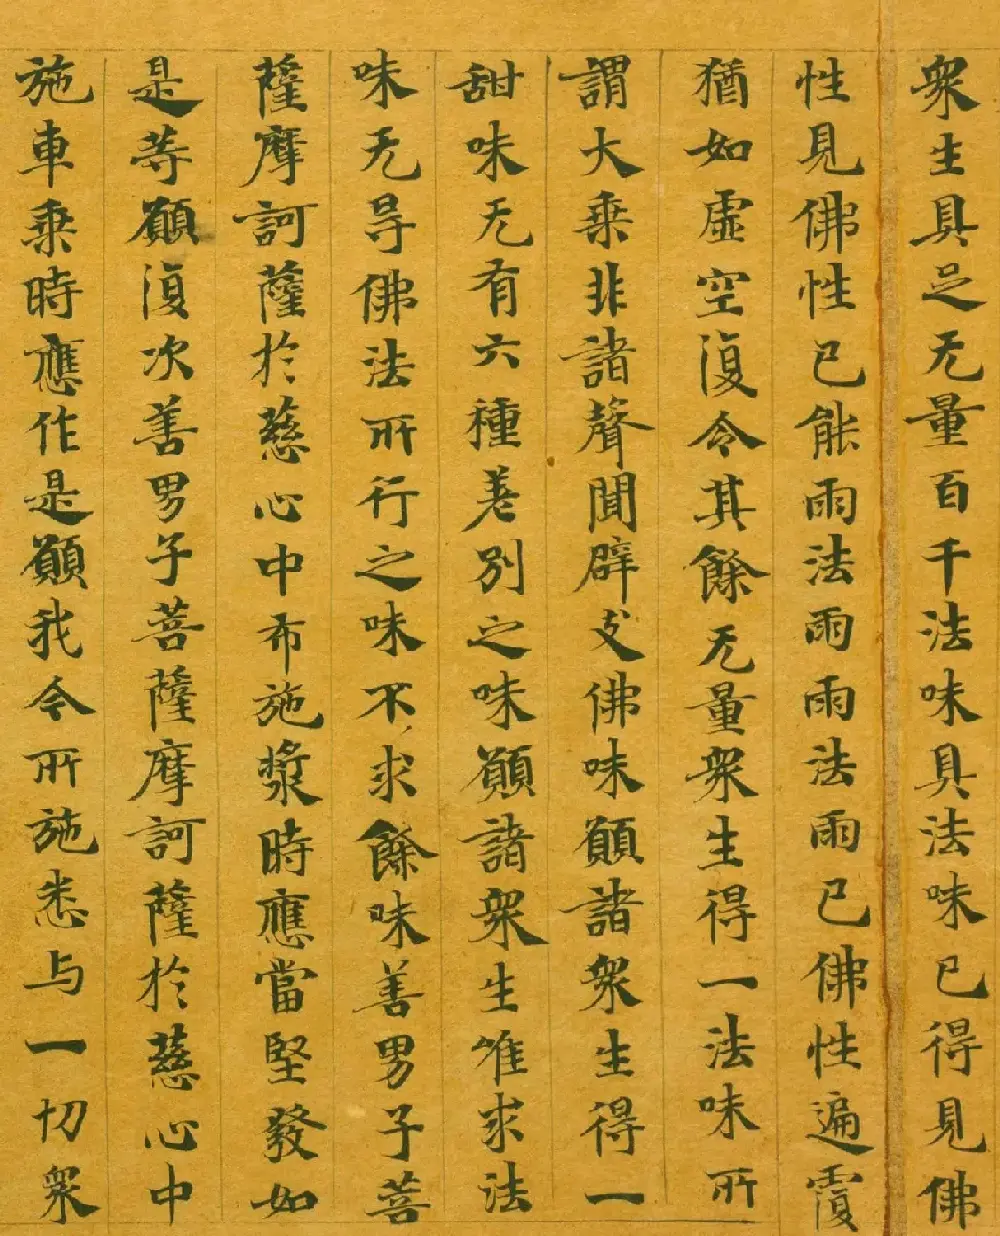 衆生具足无量百千法味具法味已得見佛
性見佛性已能雨法雨雨法雨已佛性遍覆
猶如虛空復令其餘无量衆生得一法味所
謂大乘非諸聲聞辟支佛味願諸衆生得一
甜味无有六種差別之味願諸衆生唯求法
味无㝵佛法所行之味不求餘味善男子菩
薩摩訶薩於慈心中布施漿時應當堅發如
是等願復次善男子菩薩摩訶薩於慈心中
施車乘時應作是願我今所施悉与一切衆